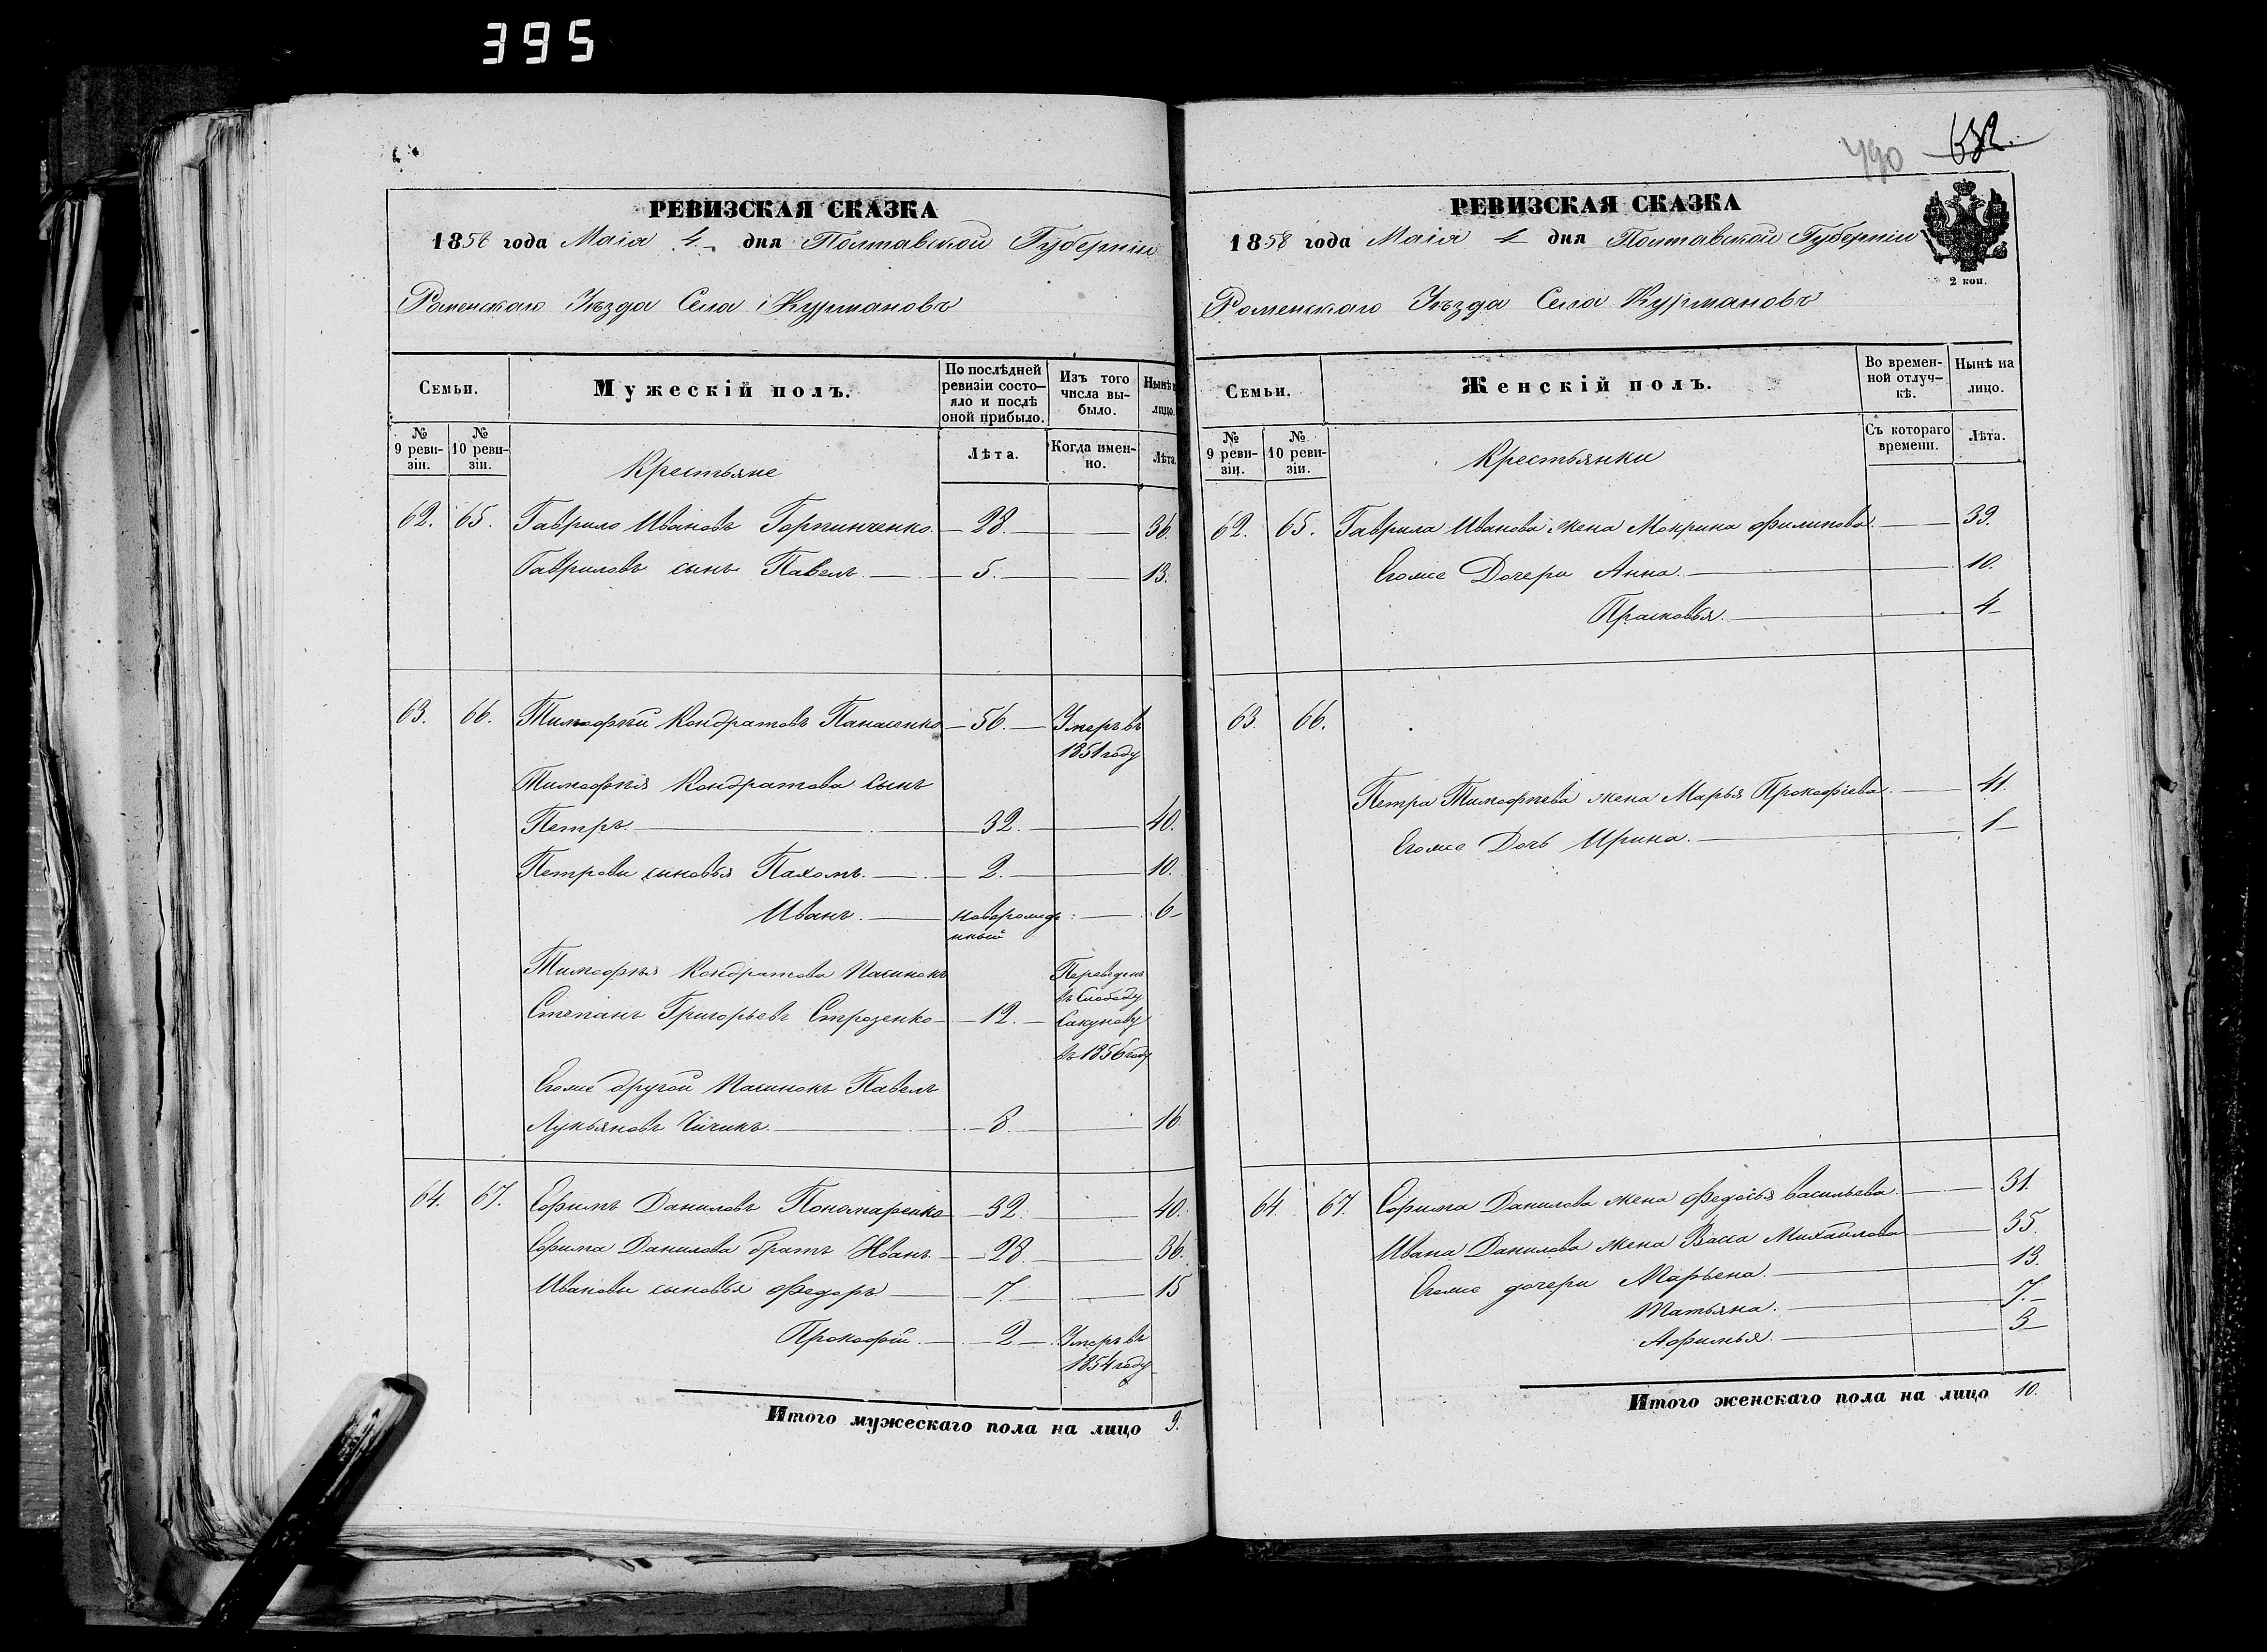 395
РЕВИЗСКАЯ СКАЗКА
1858 года Маія 4 дня Полтавской Губерніи
Роменскаго Уѣзда Села Курмановъ
Семьи.
Мужескій полъ.
По послѣдней ревизіи состояло и послѣ оной прибыло.
Изъ того числа выбыло.
Нынѣ
лицо.
№ 9 ревизіи.
№ 10 ревизіи.
Крестьяне
Лѣта.
Когда именно.
Лѣта.
62. 65. Гаврило Ивановъ Горпинченко. 28. 36.
Гавриловъ сынъ Павелъ. 5. 13.
63. 66. Тимофѣй Кондратовъ Панасенко 56. Умеръ въ
1851 году
Тимофѣя Кондратова сынъ
Петръ. 32. 40.
Петрови сыновья Пахомъ. 2. 10.
Иванъ. новорожде
нный 6
Тимофѣя Кондратова пасинокъ Переведенъ
въ Слободу
Степанъ Григорьевъ 12. Сакунову
въ 1856 году
Егоже другой пасинокъ Павелъ
Лукьяновъ 8. 16.
64. 67. Ефимъ Даниловъ Пономаренко 32. 40.
Ефима Данилова братъ Иванъ 28. 36.
Иванови сыновья Федоръ 7. 15
Прокофій 2 Умеръ въ
1854 году
Итого мужескаго пола на лицо 9.
490 632.
РЕВИЗСКАЯ СКАЗКА
1858 года Маія 4 дня Полтавской Губерніи
2 коп.
Роменскаго Уѣзда Села Курмановъ
Семьи.
Женскій полъ.
Во временной отлучкѣ.
Нынѣ на лицо.
№ 9 ревизіи.
№ 10 ревизіи.
Крестьянки
Съ котораго времени.
Лѣта.
62. 65. Гаврила Иванова жена Мокрина Филипова 39.
Егоже Дочери Анна. 10.
Прасковья. 4
63. 66.
Петра Тимофѣева жена Марья Прокофіева. 41.
Егоже Дочь Ирина. 1
64. 67. Ефима Данилова жена Федосья Васильева 31.
Ивана Данилова жена Васса Михайлова 35.
Егоже дочери Марьена. 13.
Татьяна. 7.
Афимья. 3
Итого женскаго пола на лицо 10.